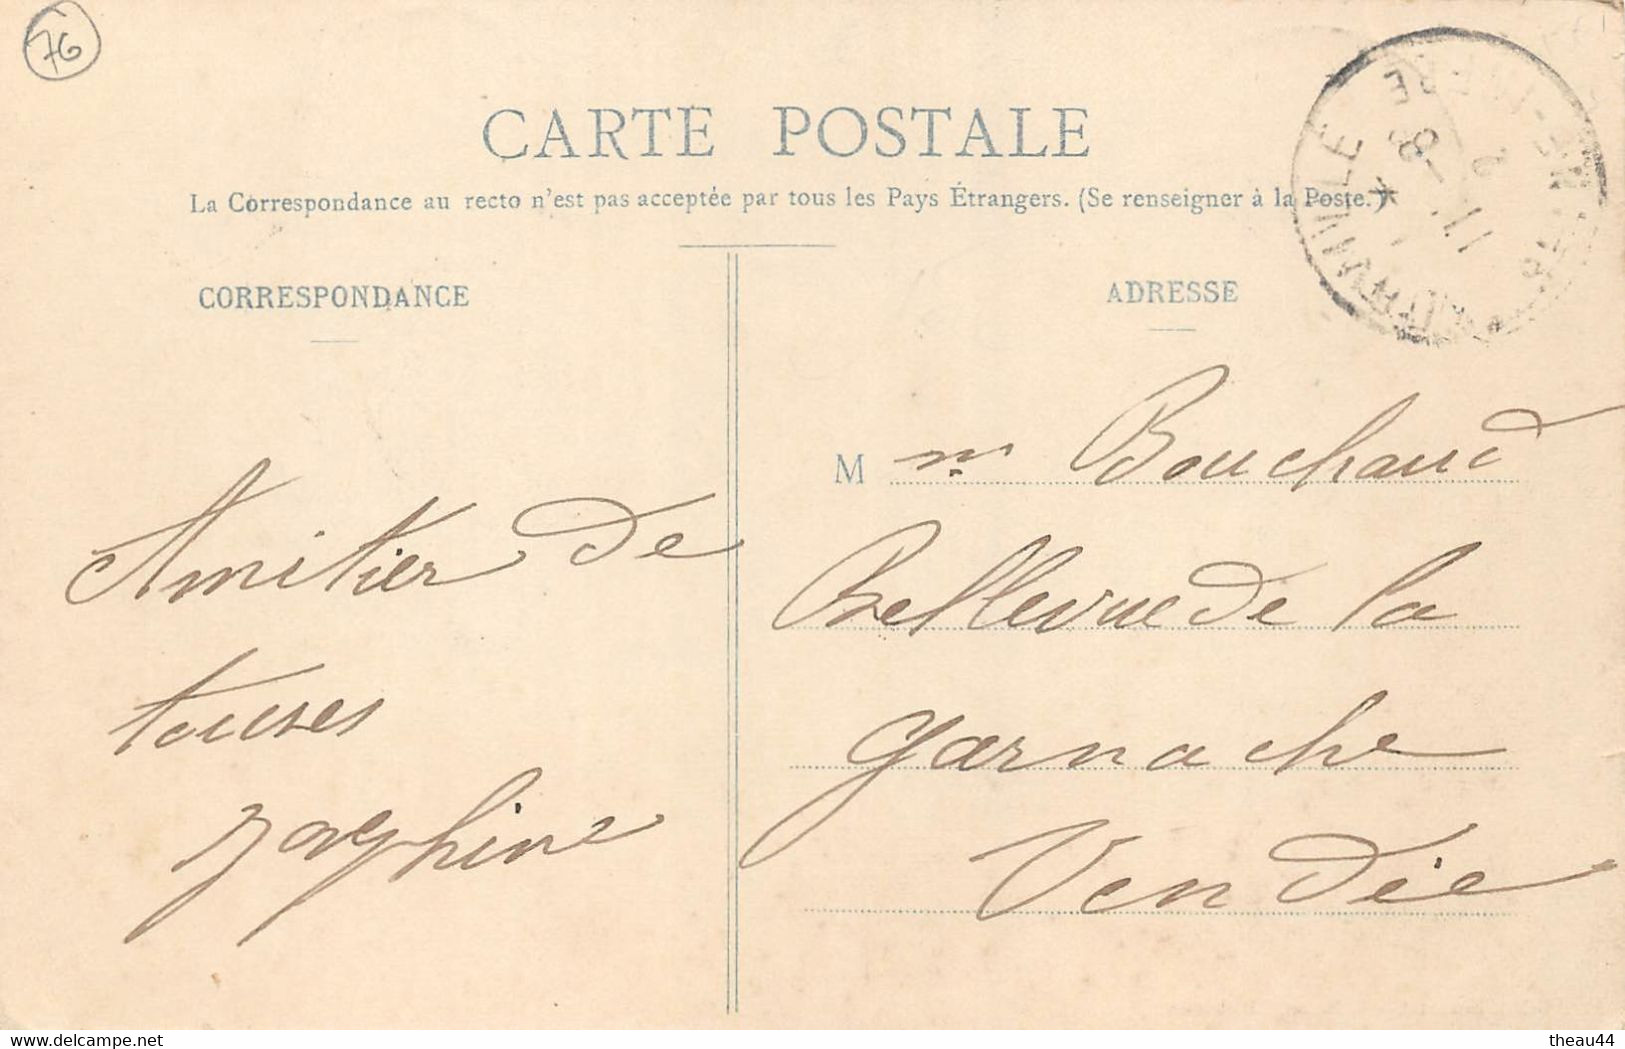 76
CARTE POSTALE
La Correspondance au recto n'est pas acceptée par tous les Pays Étrangers. (Se renseigner à la Poste.)
CORRESPONDANCE
Amitier de
touses
ADRESSE
M m Bouchaud
Bellevue de la
garnache
Vendée
www.delcampe.net
theau44